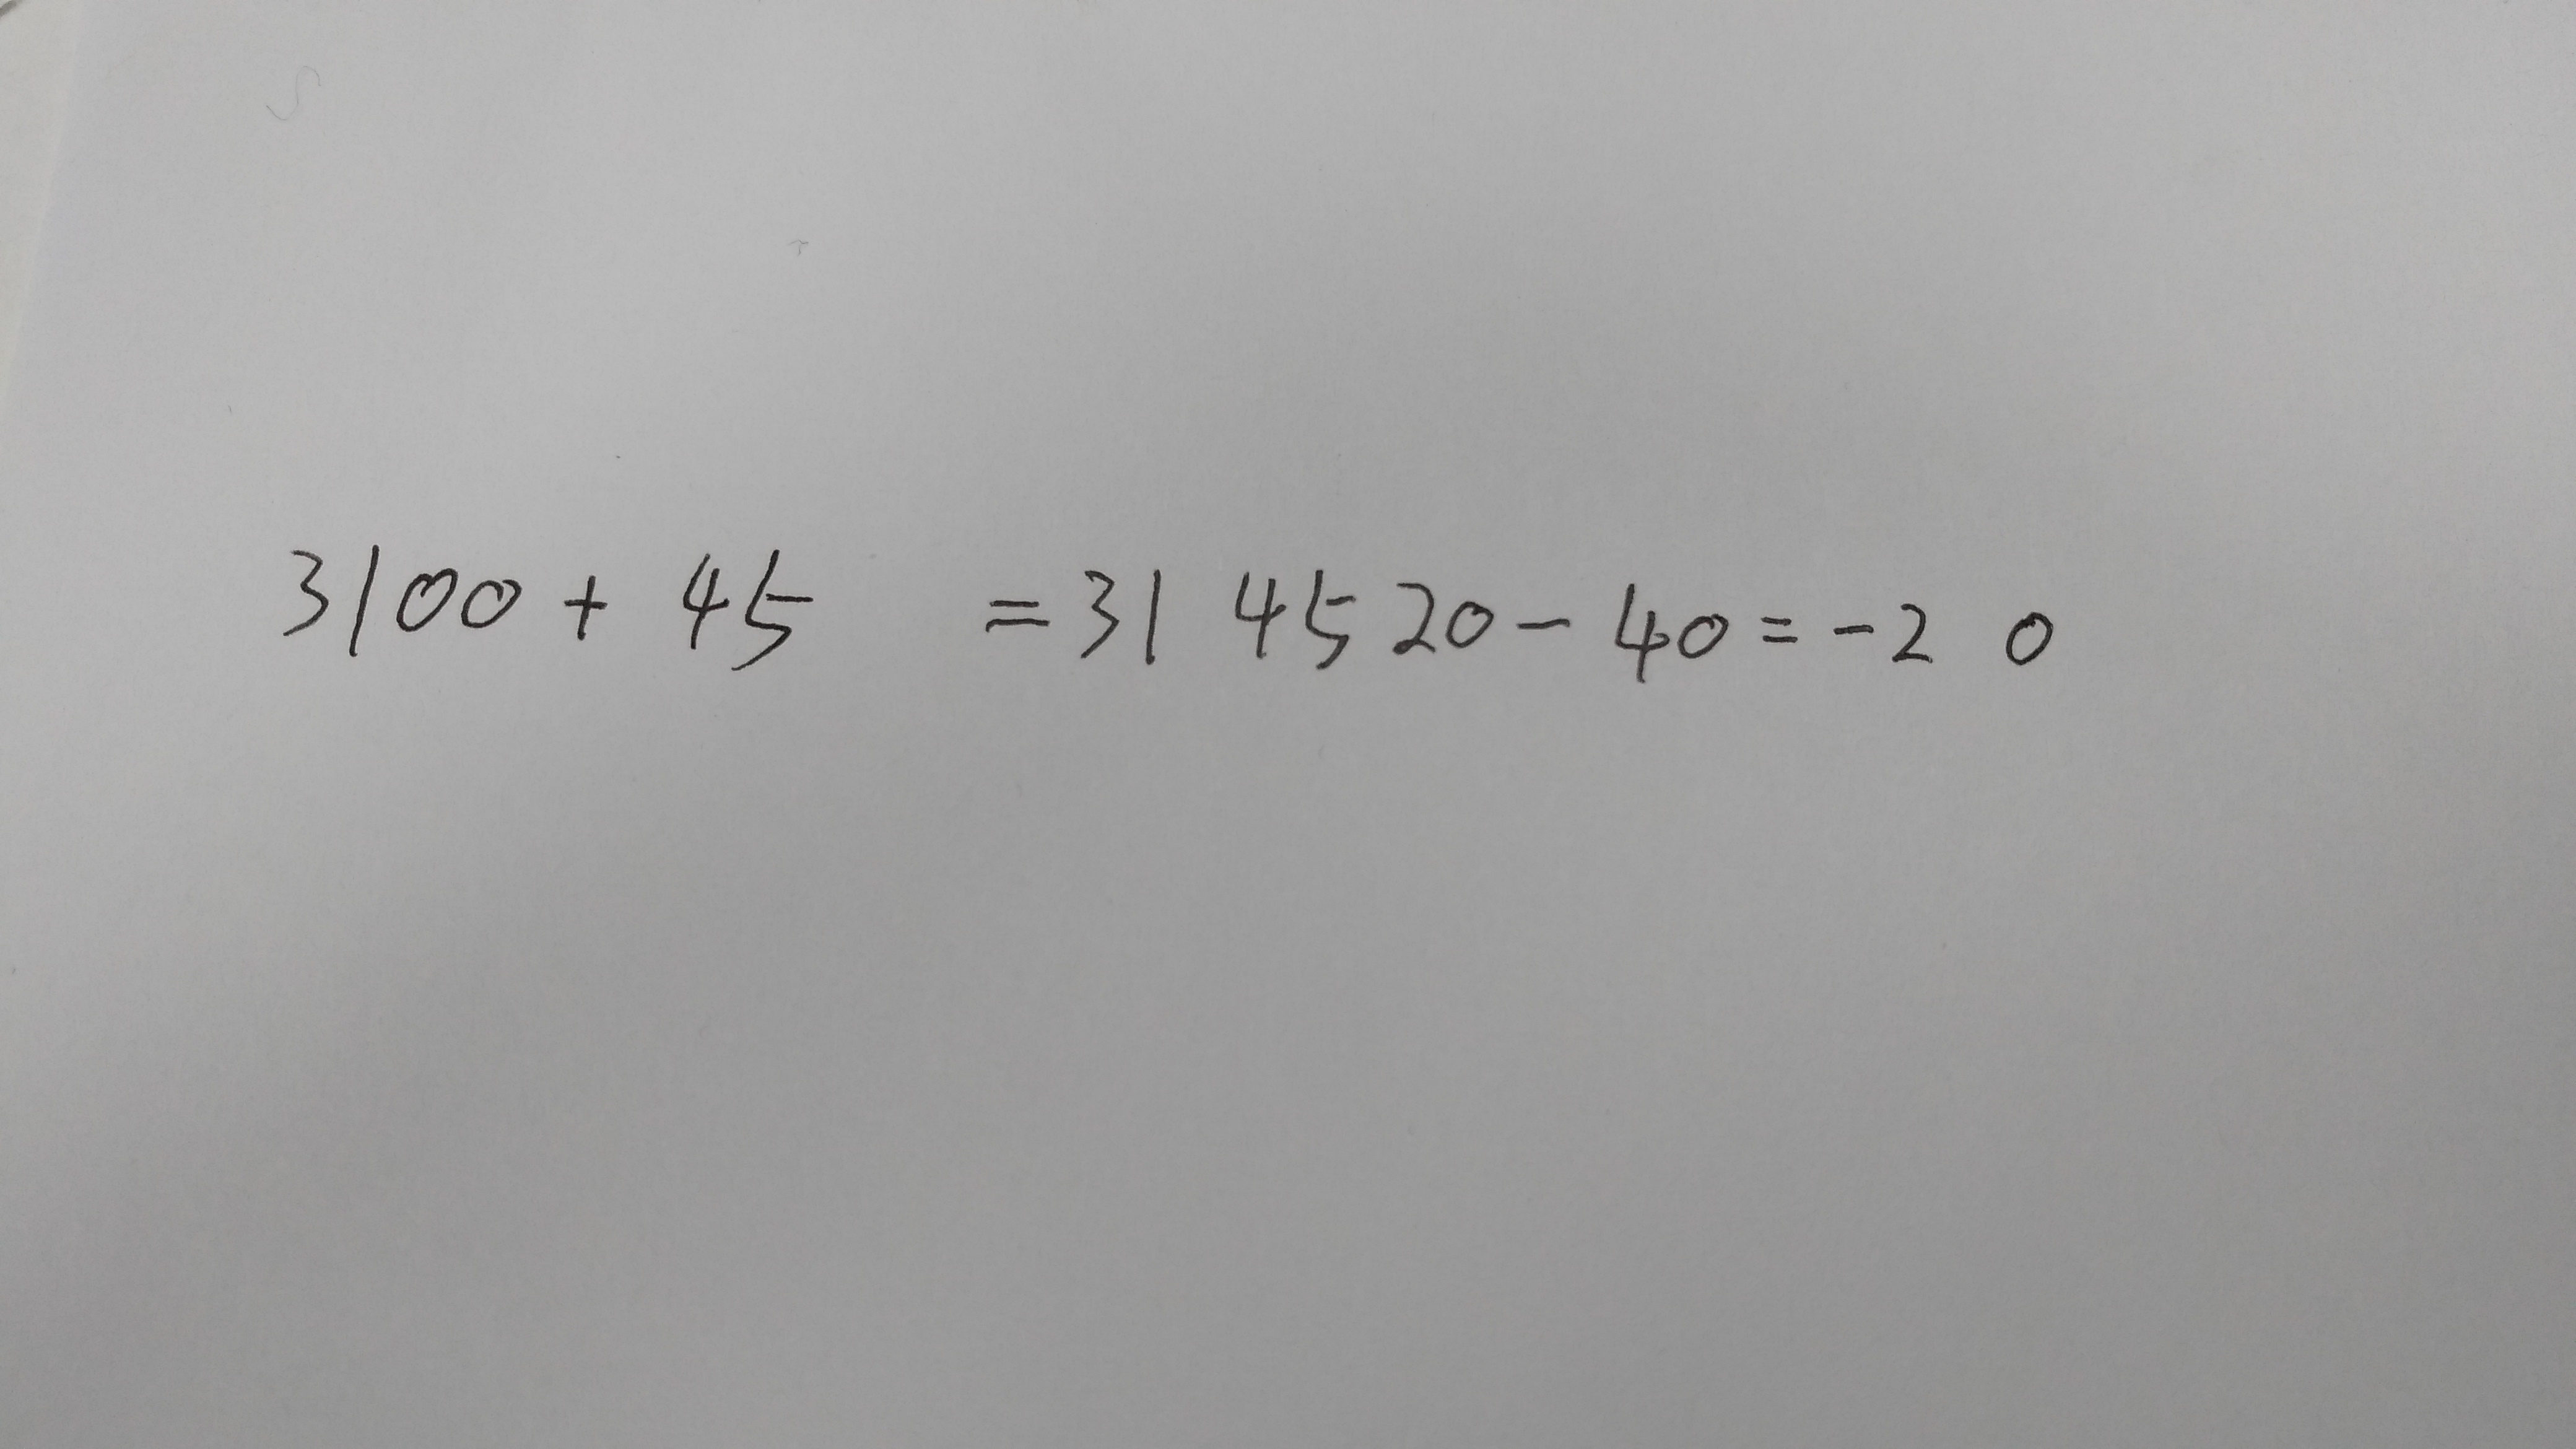 3100 + 45 = 31 45 20 - 40 = -2 0